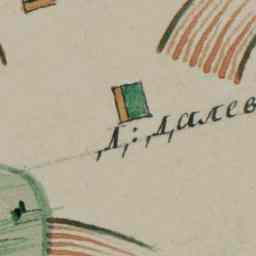 Д: Далев